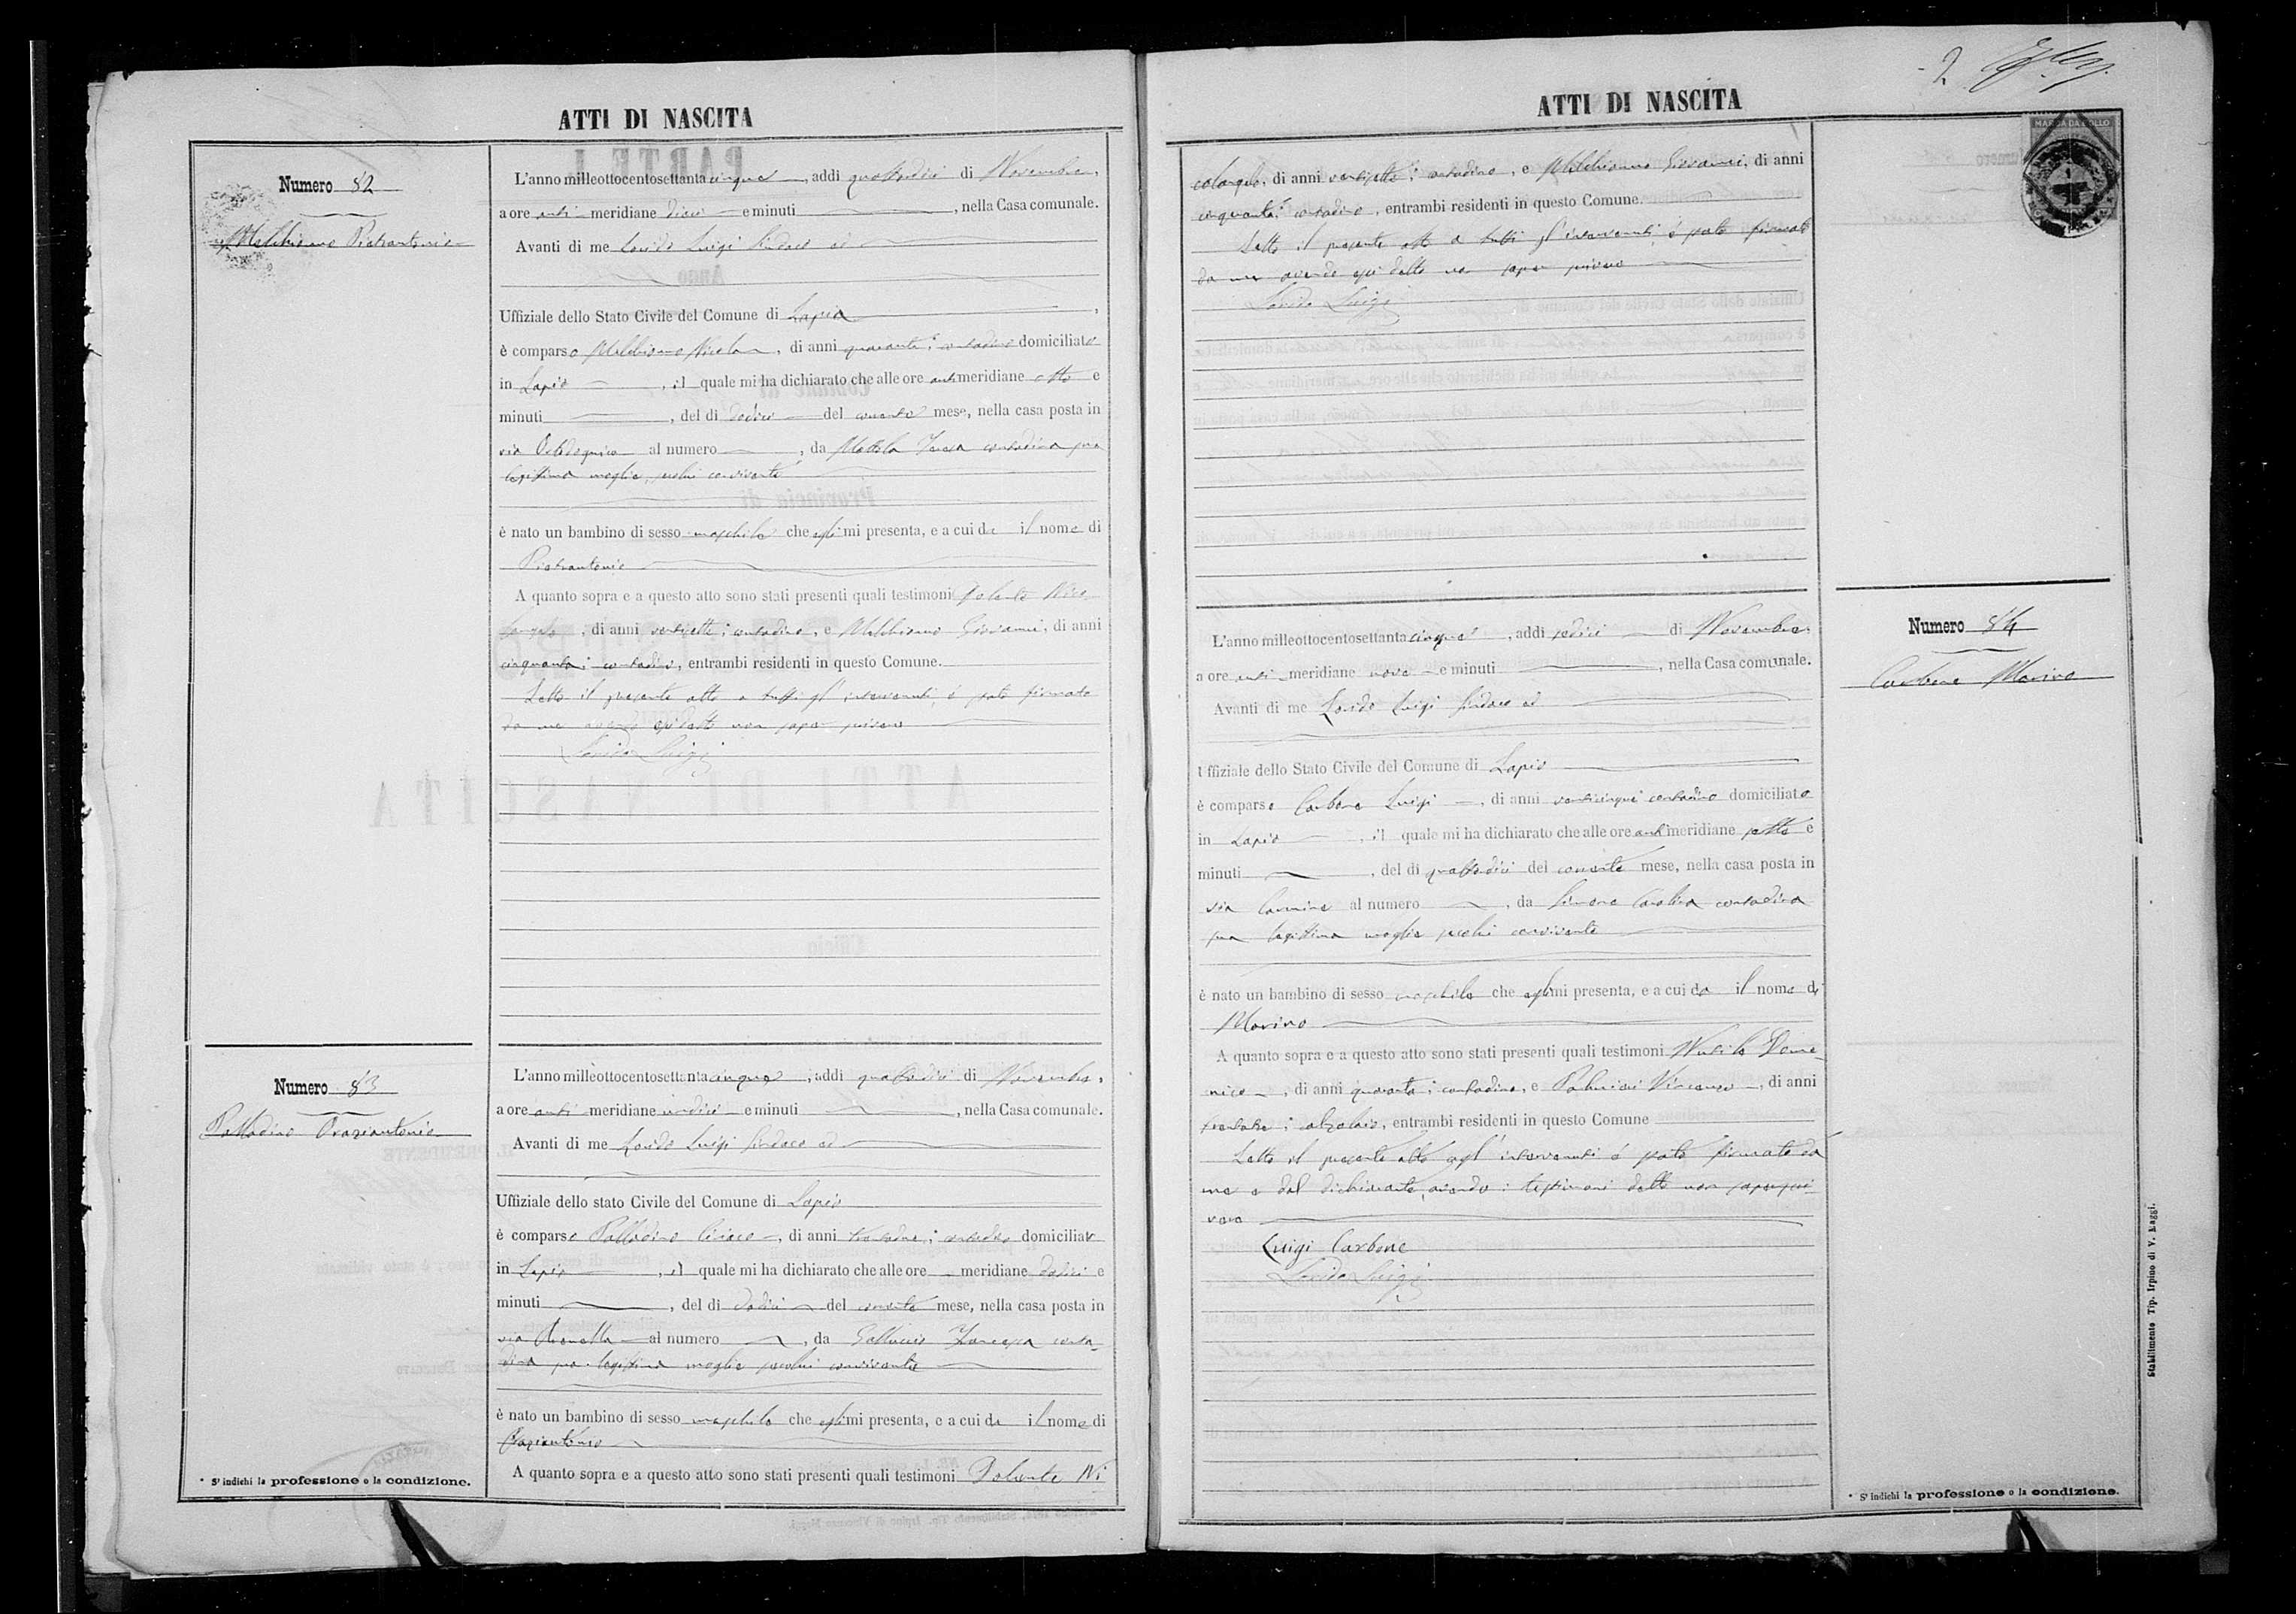 ATTI DI NASCITA
Numero 82
Melchionno Pietrantonio
L'anno milleottocentosettantacinque, addì quattordici di Novembre,
a ore anti meridiane dieci e minuti, nella Casa comunale.
Avanti di me Luigi Sindaco ed
Uffiziale dello Stato Civile del Comune di Lapio,
è comparso Melchionno Nicola, di anni quaranta, contadino domiciliato
in Lapio, il quale mi ha dichiarato che alle ore antimeridiane otto e
minuti, del dì dodici del corrente mese, nella casa posta in
via al numero, da Mottola Teresa contadina sua
legittima moglie, seco lui convivente
è nato un bambino di sesso maschile che egli mi presenta, e a cui da il nome di
Pietrantonio
A quanto sopra e a questo atto sono stati presenti quali testimoni Polcaro Nico
langelo, di anni ventisette, contadino, e Melchionno Giovanni, di anni
cinquanta, contadino, entrambi residenti in questo Comune.
Letto il presente atto a tutti gl'intervenuti, è stato firmato
da me avendo essi detto non saper scrivere
Luigi
Numero 83
Palladino Oraziantonio
L'anno milleottocentosettantacinque, addì quattordici di Novembre,
a ore anti meridiane undici e minuti, nella Casa comunale.
Avanti di me Luigi Sindaco ed
Uffiziale dello stato Civile del Comune di Lapio
è comparso Palladino Ciriaco, di anni, contadino domiciliato
in Lapio, il quale mi ha dichiarato che alle ore meridiane dodici e
minuti, del dì dodici del corrente mese, nella casa posta in
via al numero, da Galluccio Francesca conta-
dina sua legittima moglie seco lui convivente
è nato un bambino di sesso maschile che egli mi presenta, e a cui da il nome di
Oraziantonio
A quanto sopra e a questo atto sono stati presenti quali testimoni Ni
* S'indichi la professione o la condizione.
2
ATTI DI NASCITA
MARCA DA BOLLO
colangelo, di anni ventisette, contadino, e Melchionno Giovanni, di anni
cinquanta, contadino, entrambi residenti in questo Comune.
Letto il presente atto a tutti gl'intervenuti, è stato firmato
da me avendo essi detto non saper scrivere
Luigi
Numero 84
Carbone Marino
L'anno milleottocentosettantacinque, addì sedici di Novembre,
a ore anti meridiane nove e minuti, nella Casa comunale.
Avanti di me Luigi Sindaco ed
Uffiziale dello Stato Civile del Comune di Lapio
è comparso Carbone Luigi, di anni venticinque contadino domiciliato
in Lapio, il quale mi ha dichiarato che alle ore antimeridiane sette e
minuti, del dì quattordici del corrente mese, nella casa posta in
via Carmine al numero, da Simone Carolina contadina
sua legittima moglie seco lui convivente
è nato un bambino di sesso maschile che egli mi presenta, e a cui da il nome di
Marino
A quanto sopra e a questo atto sono stati presenti quali testimoni Dome-
nico, di anni quaranta, contadino, e Vincenzo, di anni
calzolaio, entrambi residenti in questo Comune
Letto il presente atto agl'intervenuti è stato firmato da
me e dal dichiarante, avendo i testimoni detto non saper scri-
vere
Luigi Carbone
Luigi
* S'indichi la professione o la condizione.
Stabilimento Tip. Irpino di V. Maggi.